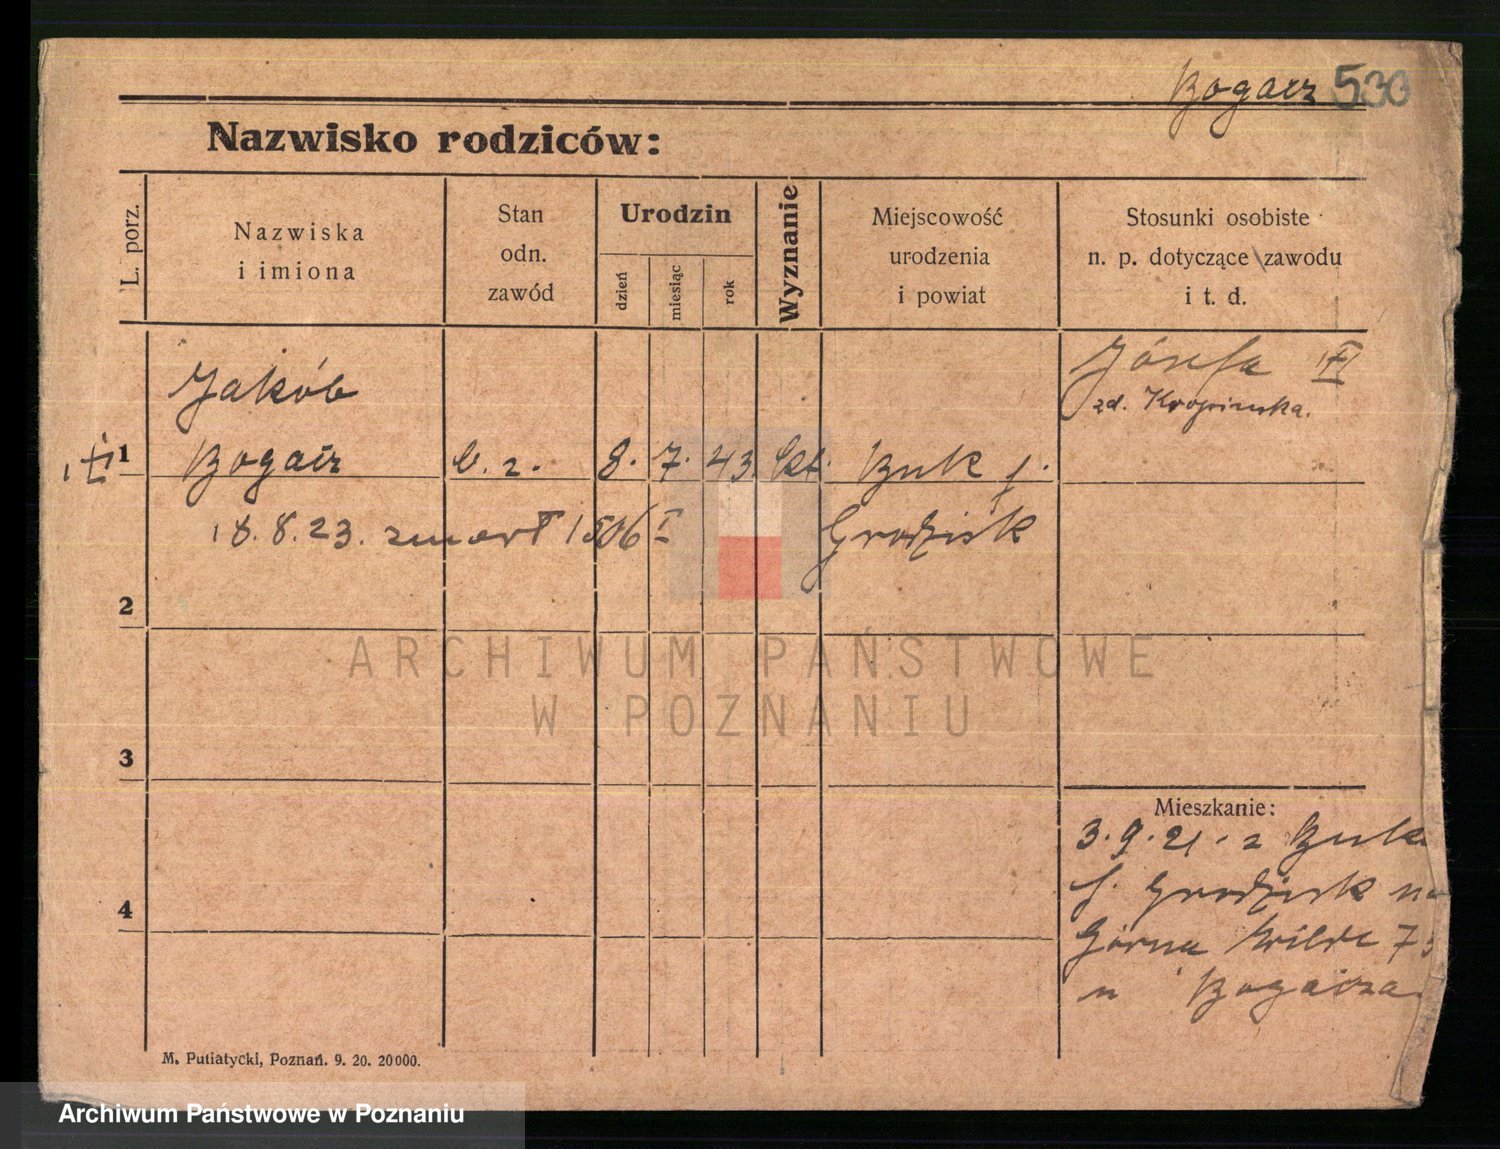 Bogacz 530
Nazwisko rodziców:
L. porz.
Nazwiska
i imiona
Stan
odn.
zawód
Urodzin
dzień
miesiąc
rok
Wyznanie
Miejscowość
urodzenia
i powiat
Stosunki osobiste
n. p. dotyczące zawodu
i t. d.
Jakób
Józefa
zd. Kropinska.
1
Bogacz b. z. 8. 7. 43. kt. Buk p.
18.8.23. zmarł 1506 I Grodzisk
2
3
4
Mieszkanie:
3.9.21. z Buk
p. Grodzisk na
Górna Wilda 73
u Bogacza
M. Putiatycki, Poznań. 9. 20. 20000.
ARCHIWUM PAŃSTWOWE
W POZNANIU
Archiwum Państwowe w Poznaniu